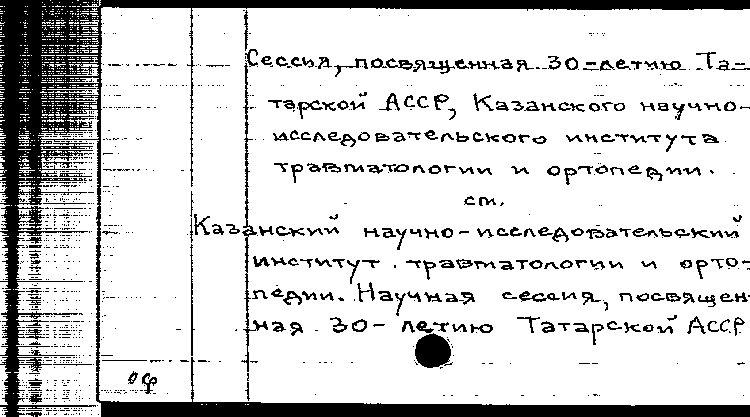 Сессия, посвященная 30-летию Та-
тарской АССР, Казанского научно-
исследовательского института
травматологии и ортопедии.
см.
Казанский научно-исследовательский
институт травматологии и орто-
педии. Научная сессия, посвящен-
ная 30-летию Татарской АССР
оф